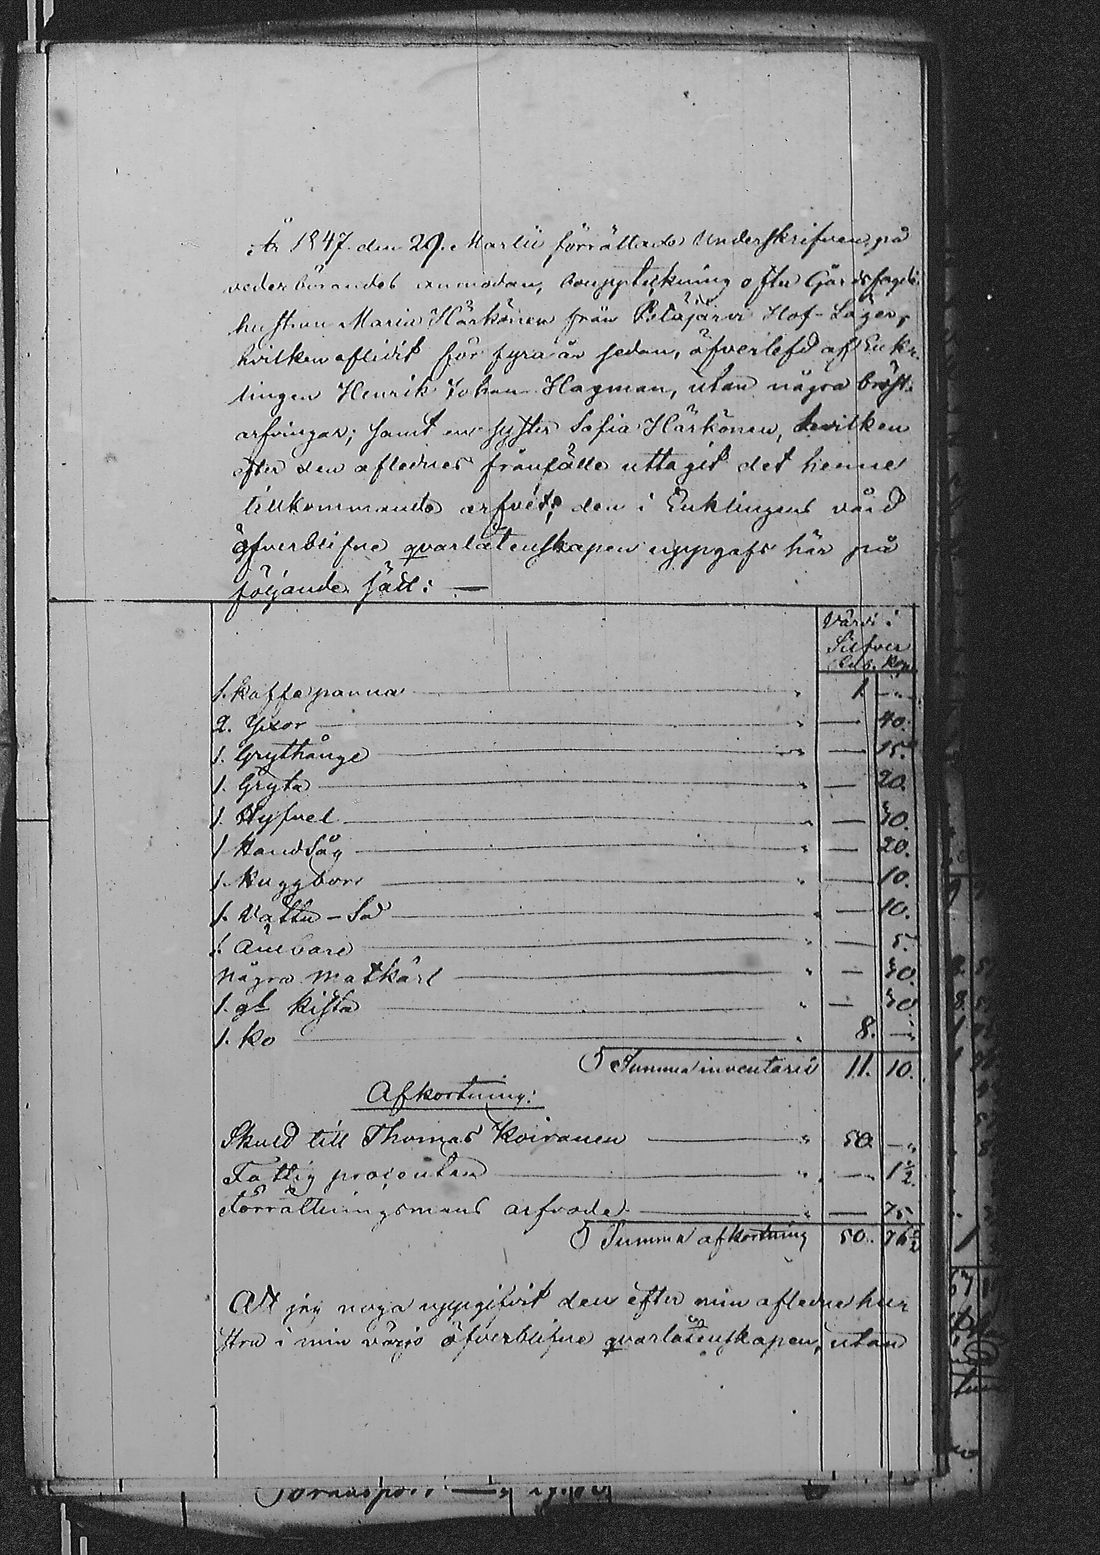 År 1847 den 29. Martii förrättade Underskrifven, på
vederbörandes anmodan, bouppteckning efter Gårdsfogde
hustrun Maria Härkönen från Petäjärvi Hof-Läger,
hvilken aflidit för fyra år sedan, öfverlefd af Enk-
lingen Henrik Johan Hagman, utan några bröst-
arfvingar; samt en syster Sofia Härkönen, hvilken
efter den aflednes frånfälle uttagit det henne
tillkommande arfvet; den i Enklingens vård
öfverblifne qvarlåtenskapen uppgafs här på
följande sätt: —
Värde i
Silfver
Rub. Kop.
1. kaffepanna — " 1. — "
2. Yxor — " — 40.
1. Grythänge — " — 15.
1. Gryta — " — 20.
1. Hyfvel — " — 30.
1 Handsåg — " — 20.
1. Nuggbore — " — 10.
1. Vattu-Så — " — 10.
1. Ämbare — " — 5.
Några Matkärl — " — 30.
1. gl. kista — " — 30
1. Ko — " 8. — "
Summa inventarii 11. 10.
Afkortning:
Skuld till Thomas Koiranen — " 50. — "
Fattig procenten — " — 1½
Förrättningsmans arfvode — " — 75.
Summa afkortning 50. 76½
Att jag noga uppgifvit den efter min afledna hu-
stru i min värjo öfverblifne qvarlåtenskapen, utan